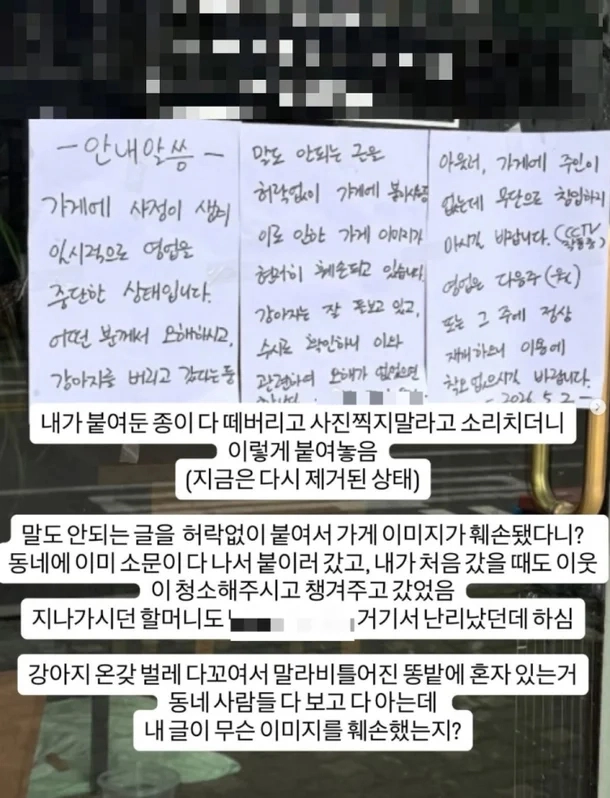 - 안내말씀 -
가게에 사정이 생겨
일시적으로 영업을
중단한 상태입니다.
어떤 분께서 오해하시고,
강아지를 버리고 갔다는 둥
말도 안되는 글을
허락없이 가게에 붙이셨는데
이로 인한 가게 이미지가
현저히 훼손되고 있습니다.
강아지는 잘 돌보고 있고,
수시로 확인하니 이와
관련하여 오해가 없었으면
아울러, 가게에 주인이
없는데 무단으로 침입하지
마시길 바랍니다. (CCTV
작동중)
영업은 다음주
또는 그 주에 정상
재개하오니 이용에
착오없으시길 바랍니다.
- 2026. 5. 2 -
내가 붙여둔 종이 다 떼버리고 사진찍지말라고 소리치더니
이렇게 붙여놓음
(지금은 다시 제거된 상태)
말도 안되는 글을 허락없이 붙여서 가게 이미지가 훼손됐다니?
동네에 이미 소문이 다 나서 붙이러 갔고, 내가 처음 갔을 때도 이웃
이 청소해주시고 챙겨주고 갔었음
지나가시던 할머니도 거기서 난리났던데 하심
강아지 온갖 벌레 다꼬여서 말라비틀어진 똥밭에 혼자 있는거
동네 사람들 다 보고 다 아는데
내 글이 무슨 이미지를 훼손했는지?